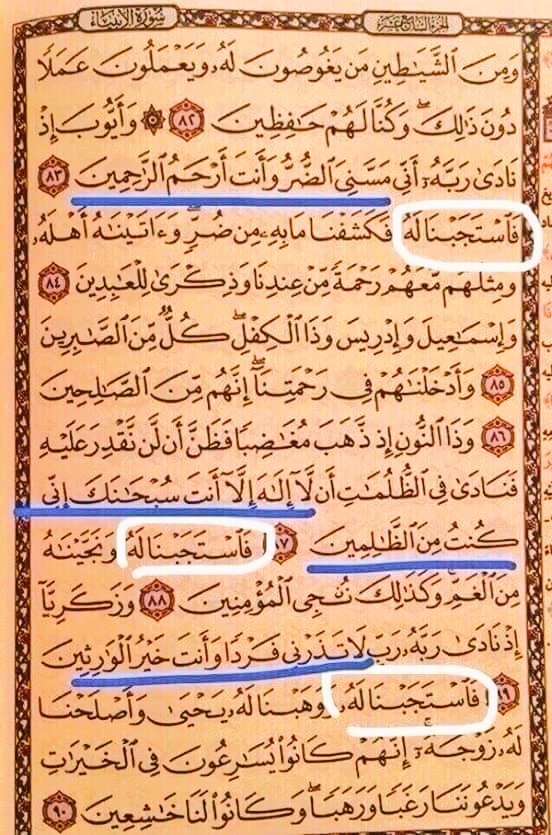 الجزء السابع عشر سورة الأنبياء
وَمِنَ ٱلشَّيَٰطِينِ مَن يَغُوصُونَ لَهُۥ وَيَعْمَلُونَ عَمَلًا
دُونَ ذَٰلِكَۖ وَكُنَّا لَهُمْ حَٰفِظِينَ ٨٢ ۞ وَأَيُّوبَ إِذْ
نَادَىٰ رَبَّهُۥٓ أَنِّي مَسَّنِيَ ٱلضُّرُّ وَأَنتَ أَرْحَمُ ٱلرَّٰحِمِينَ ٨٣
فَٱسْتَجَبْنَا لَهُۥ فَكَشَفْنَا مَا بِهِۦ مِن ضُرٍّۖ وَءَاتَيْنَٰهُ أَهْلَهُۥ
وَمِثْلَهُم مَّعَهُمْ رَحْمَةً مِّنْ عِندِنَا وَذِكْرَىٰ لِلْعَٰبِدِينَ ٨٤
وَإِسْمَٰعِيلَ وَإِدْرِيسَ وَذَا ٱلْكِفْلِۖ كُلٌّ مِّنَ ٱلصَّٰبِرِينَ
٨٥ وَأَدْخَلْنَٰهُمْ فِي رَحْمَتِنَآۖ إِنَّهُم مِّنَ ٱلصَّٰلِحِينَ
٨٦ وَذَا ٱلنُّونِ إِذ ذَّهَبَ مُغَٰضِبًا فَظَنَّ أَن لَّن نَّقْدِرَ عَلَيْهِ
فَنَادَىٰ فِي ٱلظُّلُمَٰتِ أَن لَّآ إِلَٰهَ إِلَّآ أَنتَ سُبْحَٰنَكَ إِنِّي
كُنتُ مِنَ ٱلظَّٰلِمِينَ ٨٧ فَٱسْتَجَبْنَا لَهُۥ وَنَجَّيْنَٰهُ
مِنَ ٱلْغَمِّۚ وَكَذَٰلِكَ نُـۨجِي ٱلْمُؤْمِنِينَ ٨٨ وَزَكَرِيَّآ
إِذْ نَادَىٰ رَبَّهُۥ رَبِّ لَا تَذَرْنِي فَرْدًا وَأَنتَ خَيْرُ ٱلْوَٰرِثِينَ
٨٩ فَٱسْتَجَبْنَا لَهُۥ وَوَهَبْنَا لَهُۥ يَحْيَىٰ وَأَصْلَحْنَا
لَهُۥ زَوْجَهُۥٓۚ إِنَّهُمْ كَانُوا۟ يُسَٰرِعُونَ فِي ٱلْخَيْرَٰتِ
وَيَدْعُونَنَا رَغَبًا وَرَهَبًاۖ وَكَانُوا۟ لَنَا خَٰشِعِينَ ٩٠